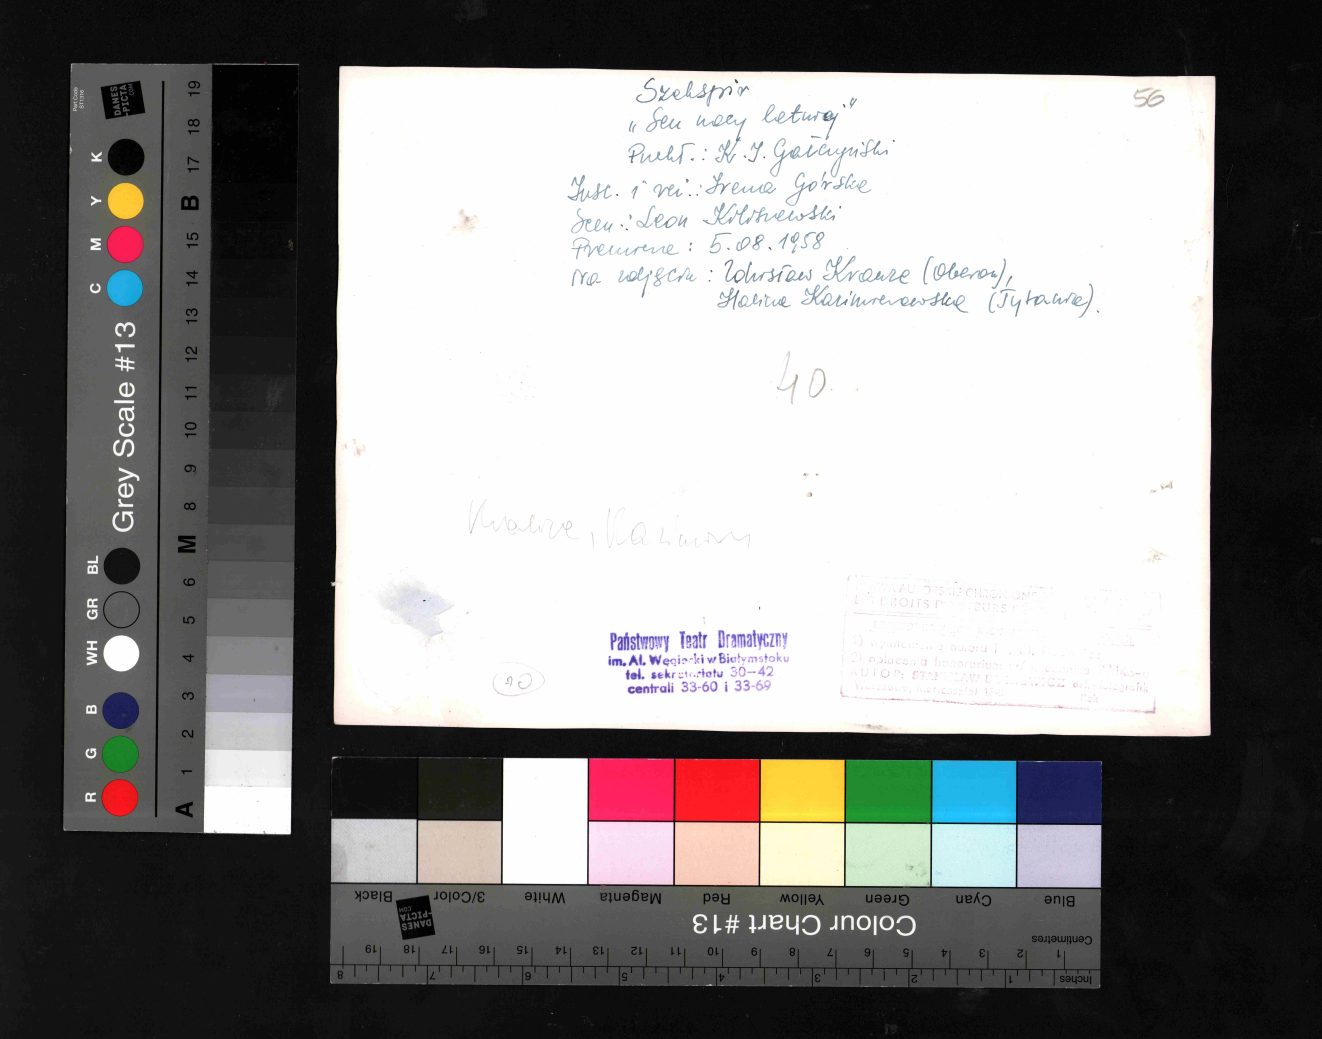 56
Szekspir
„Sen nocy letniej"
Przekł.: K. I. Gałczyński
Insc. i reż.: Irena Górska
Scen.: Leon
Premiera: 5.08.1958
Na zdjęciu: Zdzisław Krauze (Oberon),
Halina Kazimierowska (Tytania).
40
Krauze, Kazimier
20
Państwowy Teatr Dramatyczny
im. Al. Węgierki w Białymstoku
tel. sekretariatu 30—42
centrali 33-60 i 33-69
AUTOR: STANISŁAW
Part Code
ST1316
DANES
-PICTA
.COM
Grey Scale #13
R G B WH GR BL C M Y K
A 1 2 3 4 5 6 M 8 9 10 11 12 13 14 15 B 17 18 19
Colour Chart #13
Blue Cyan Green Yellow Red Magenta White 3/Color Black
DANES
-PICTA
.COM
Centimetres
1 2 3 4 5 6 7 8 9 10 11 12 13 14 15 16 17 18 19
Inches
1 2 3 4 5 6 7 8